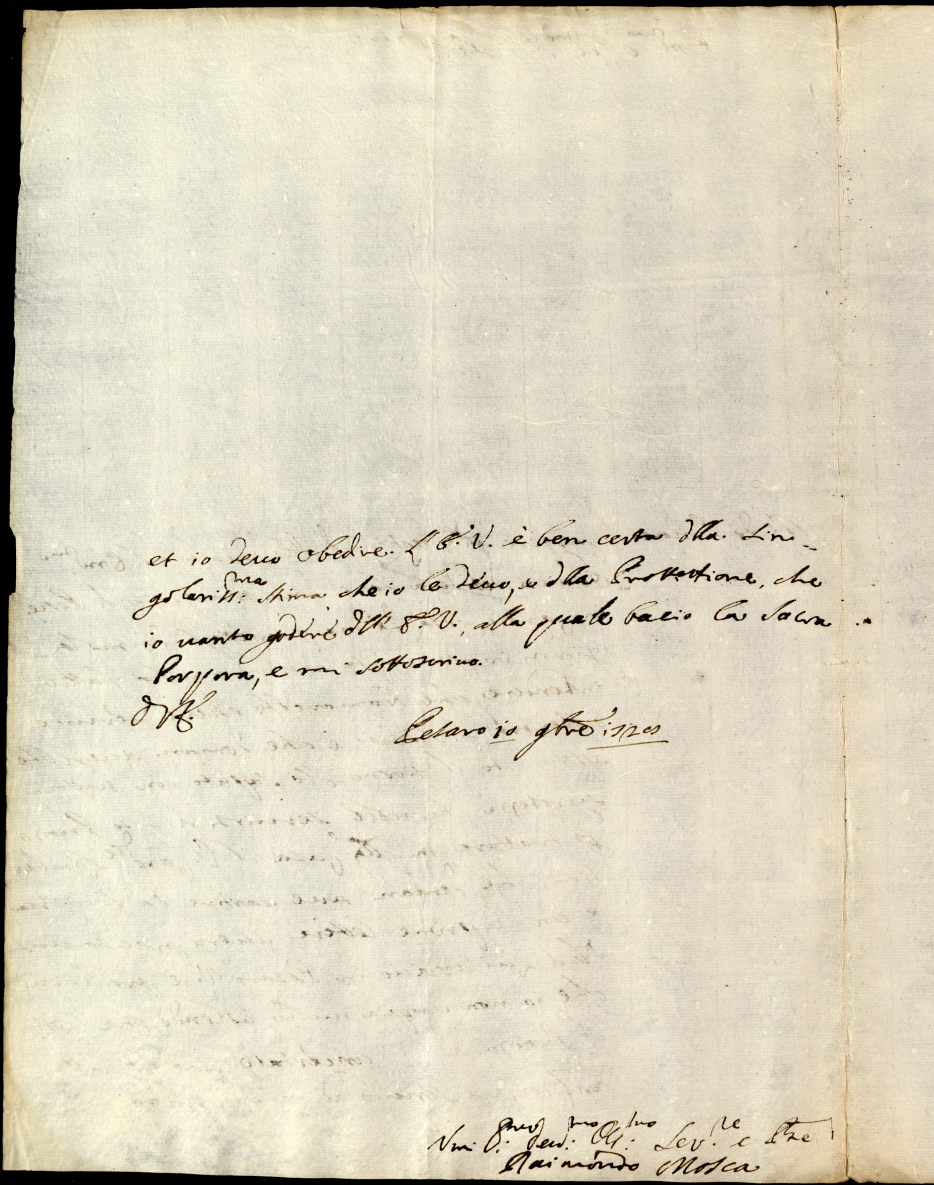 et io devo obedire. L'E. V. è ben certa dlla sin-
golariss:ma stima che io le devo, e dlla Protettione, che
io vanto godere dll' E. V., alla quale bacio la Sacra
Porpora, e mi sottoscrivo.
Pesaro 10 9bre
Dev: Obl: Ser:re e
Raimondo Mosca